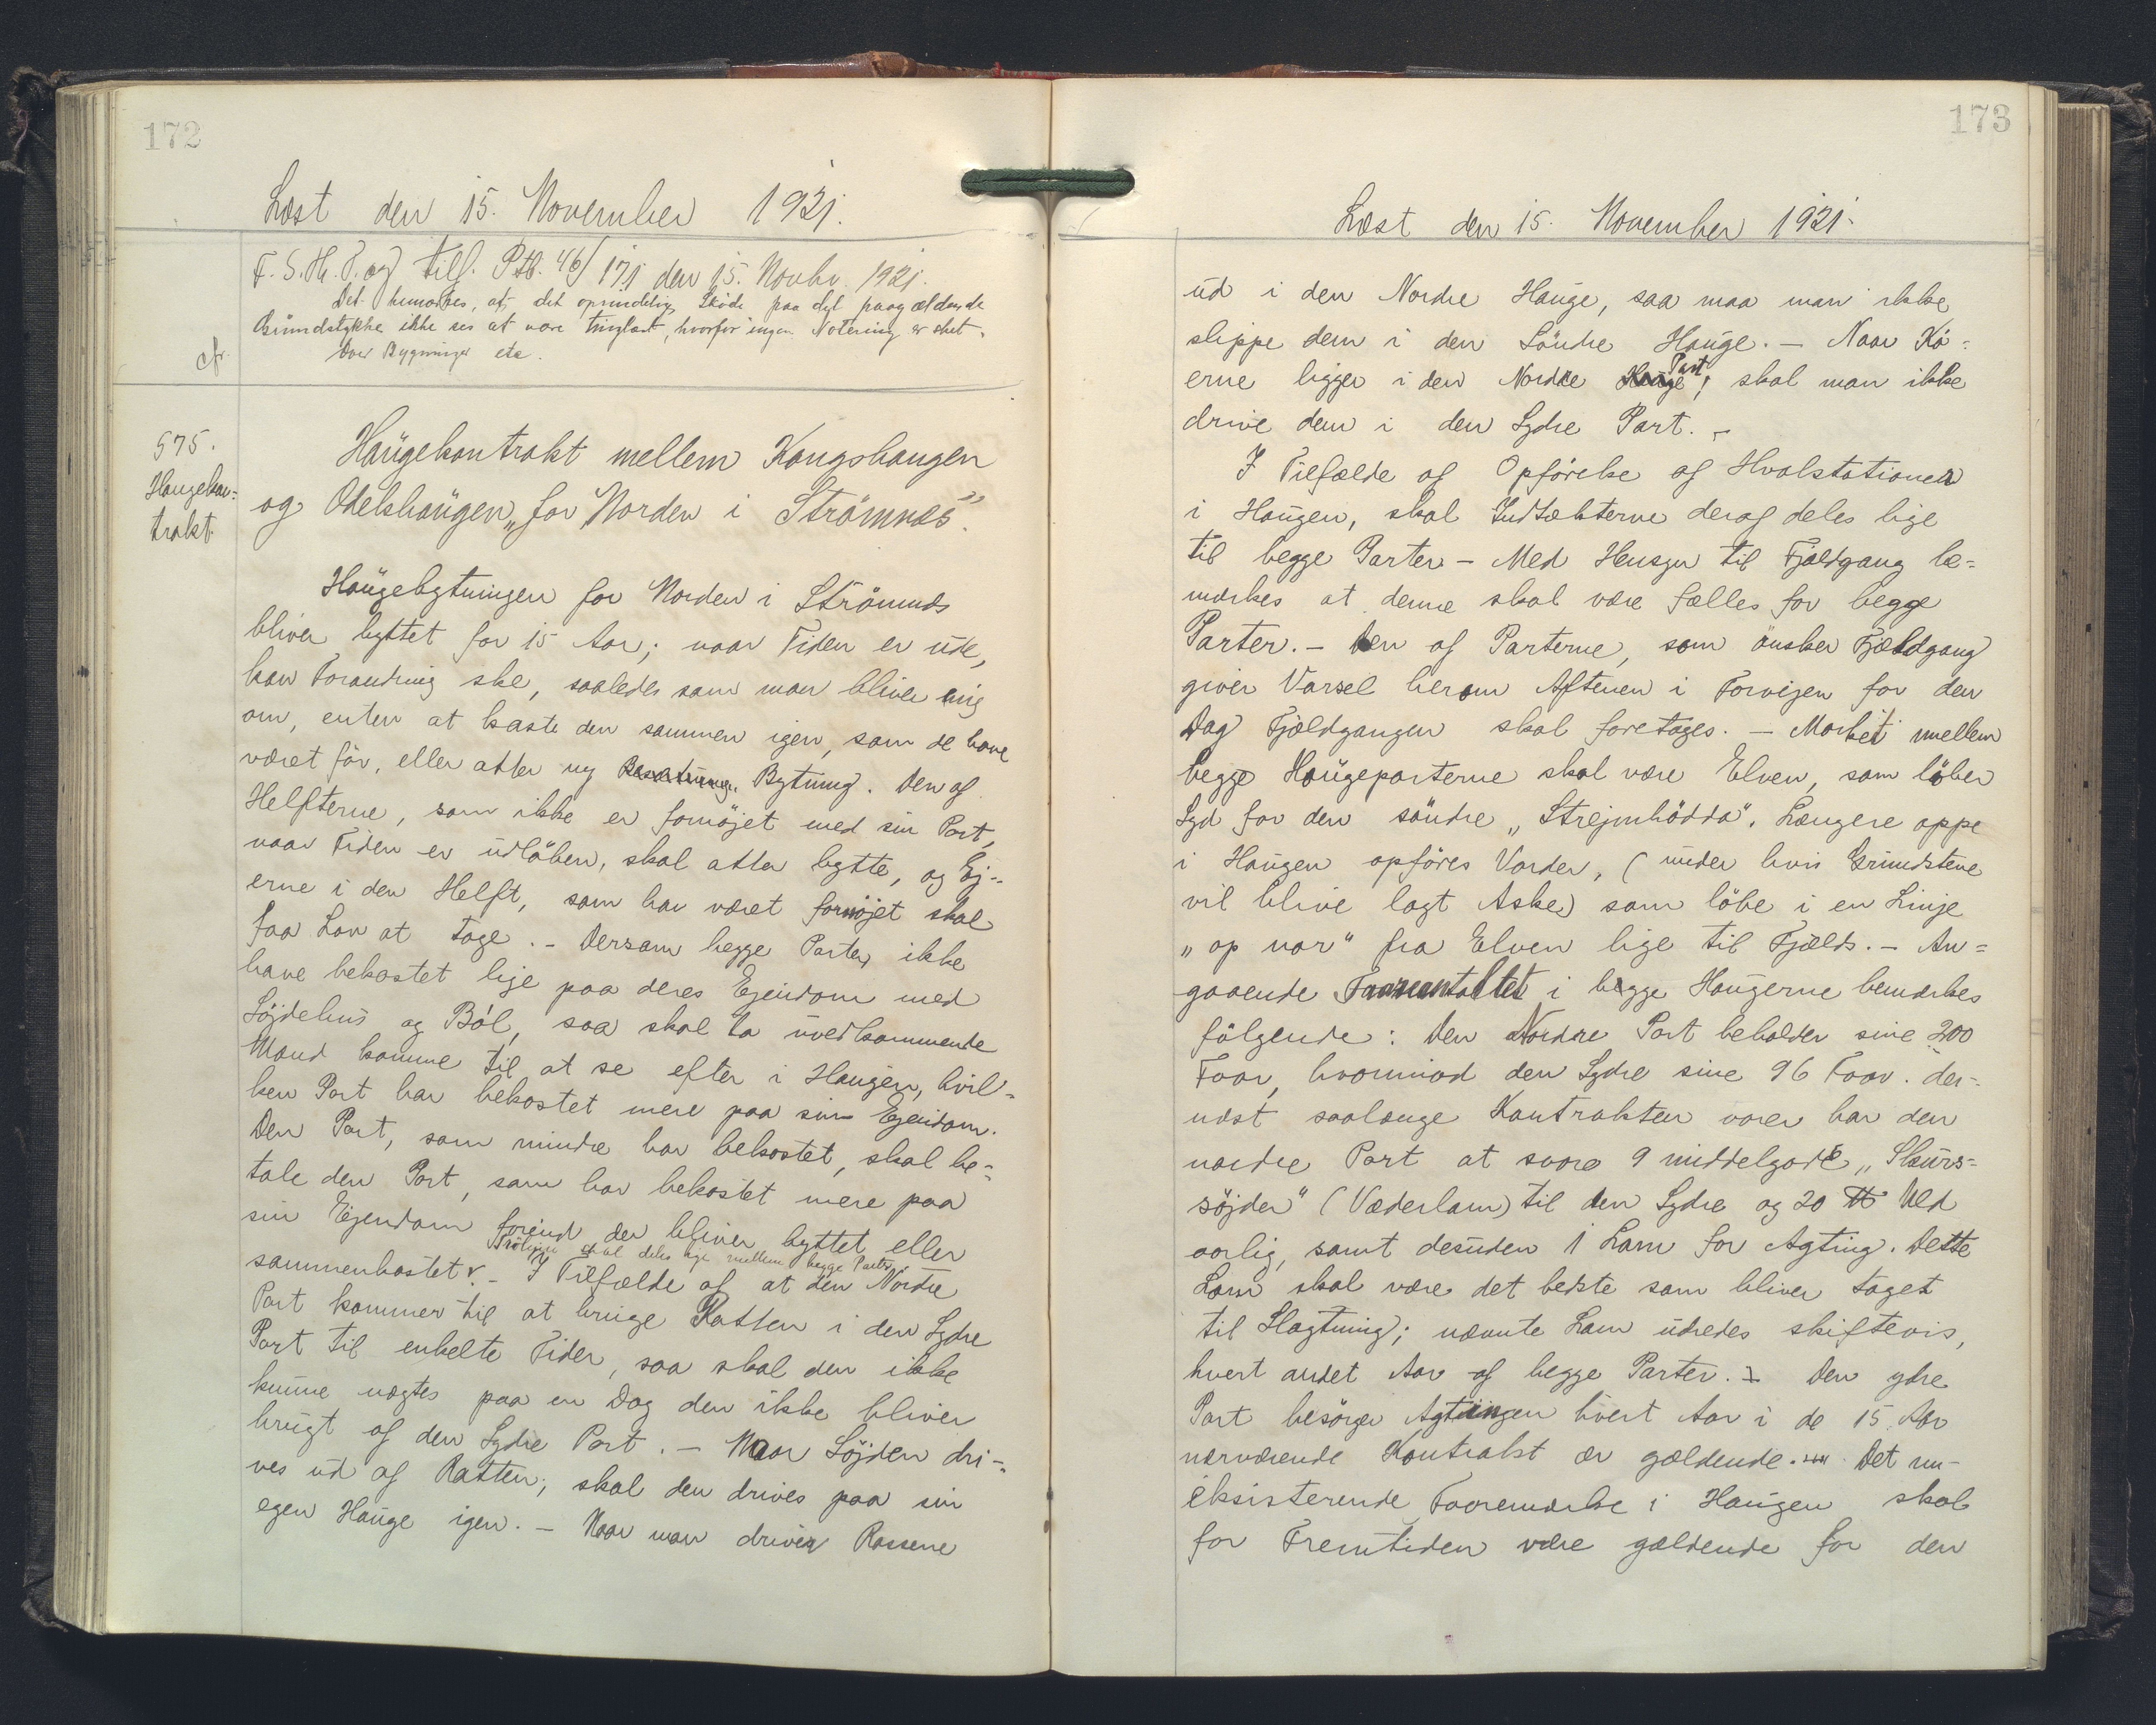 172
Læst den 15. November 1921.
F. S. H. P. og tilf. Ptb. 46/171 den 15. Novbr. 1921.
Det bemærkes, at det oprindelig Skøde paa det paagældende
Grundstykke ikke ses at være tinglæst, hvorfor ingen Notering er sket.
cfr. over Bygninger etc.
575.
Haugekon=
trakt.
Haugekontrakt mellem Kongshaugen
og Odelshaugen „for Norden i Strömnæs".
Haugebytningen for Norden i Strömnæs
bliver byttet for 15 Aar; naar Tiden er ude,
kan Forandring ske, saaledes som man bliver enig
om, enten at kaste den sammen igen, som de have
været för, eller atter ny Bytning. Den af
Helfterne, som ikke er fornöjet med sin Part,
naar Tiden er udlöben, skal atter bytte, og Ej=
erne i den Helft, som har været fornöjet skal
faa Lov at tage. - Dersom begge Parter ikke
have bekostet lige paa deres Ejendom med
Söjdehus og Ból, saa skal to uvedkommende
Mænd komme til at se efter i Haugen, hvil=
ken Part har bekostet mere paa sin Ejendom.
Den Part, som mindre har bekostet, skal be=
tale den Part, som har bekostet mere paa
sin Ejendom forind der bliver byttet eller
skal deles lige mellem begge Parter.
sammenkastet. - I Tilfælde af at den Nordre
Part kommer til at bruge Ratten i den Sydre
Part til enkelte Tider, saa skal den ikke
kunne nægtes paa en Dag den ikke bliver
brugt af den Sydre Part. - Naar Söjden dri=
ves ud af Ratten, skal den drives paa sin
egen Hauge igen. - Naar man driver Rossene
173
Læst den 15. November 1921.
ud i den Nordre Hauge, saa maa man ikke
slippe dem i den Söndre Hauge. - Naar Kö=
erne ligger i den Nordre Hauge Part, skal man ikke
drive dem i den Sydre Part. -
I Tilfælde af Opförelse af Hvalstationer
i Haugen, skal Indtækterne deraf deles lige
til begge Parter - Med Hensyn til Fjældgang be=
mærkes at denne skal være fælles for begge
Parter. - Den af Parterne, som önsker Fjældgang
giver Varsel herom Aftenen i Forvejen for den
Dag Fjældgangen skal foretages. - Market mellem
begge Haugeparterne skal være Elven, som löber
Syd for den söndre „Strejmhödda". Længere oppe
i Haugen opföres Varder, (under hvis Grundstene
vil blive lagt Aske) som löbe i en Linje
„op nor" fra Elven lige til Fjælds. - An=
gaaende Faareantallet i begge Haugerne bemærkes
fölgende: Den Nordre Part beholder sine 200
Faar, hvorimod den Sydre sine 96 Faar. der=
næst saalænge Kontrakten varer har den
nordre Part at svare 9 middelgode „Skurs=
söjder" (Væderlam) til den Sydre og 20 ℔ Uld
aarlig, samt desuden 1 Lam for Agting. Dette
Lam skal være det bedste som bliver taget
til Slagtning; nævnte Lam udredes skiftevis,
hvert andet Aar af begge Parter. - Den ydre
Part besörger Agtingen hvert Aar i de 15 Aar
nærværende Kontrakt er gældende. Det nu=
eksisterende Faaremærke i Haugen skal
for Fremtiden være gældende for den